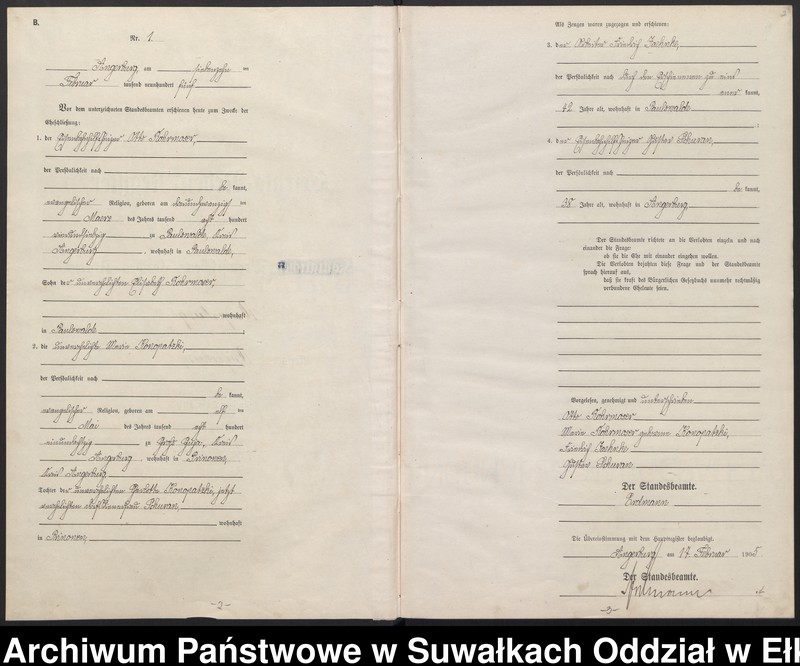 B.
Nr. 1.
Angerburg am siebenzehn ten
Februar tausend neunhundert fünf
Vor dem unterzeichneten Standesbeamten erschienen heute zum Zwecke der
Eheschließung:
1. der Otto Rohrmoser,
der Persönlichkeit nach
be kannt,
evangelischer Religion, geboren am ten
Maerz des Jahres tausend acht hundert
zu Paulswalde, Kreis
Angerburg, wohnhaft in Paulswalde,
Sohn der unverehelichten Elisabeth Rohrmoser,
wohnhaft
in Paulswalde
2. die unverehelichte Marie Konopatzki,
der Persönlichkeit nach
be kannt,
evangelischer Religion, geboren am elf ten
Mai des Jahres tausend acht hundert
einundachtzig zu Groß Guja, Kreis
Angerburg wohnhaft in Prinowen,
Kreis Angerburg
Tochter der unverehelichten Charlotte Konopatzki, jetzt
verehelichten Skuran,
wohnhaft
in Prinowen,
-2-
Als Zeugen waren zugezogen und erschienen:
3. der Arbeiter Friedrich
der Persönlichkeit nach
kannt,
42 Jahre alt, wohnhaft in Paulswalde
;
4. der Gustav Skuran,
der Persönlichkeit nach
be kannt,
38 Jahre alt, wohnhaft in Angerburg
Der Standesbeamte richtete an die Verlobten einzeln und nach
einander die Frage:
ob sie die Ehe mit einander eingehen wollen.
Die Verlobten bejahten diese Frage und der Standesbeamte
sprach hierauf aus,
daß sie kraft des Bürgerlichen Gesetzbuchs nunmehr rechtmäßig
verbundene Eheleute seien.
Vorgelesen, genehmigt und unterschrieben
Otto Rohrmoser
Marie Rohrmoser geborene Konopatzki,
Friedrich
Gustav Skuran
Der Standesbeamte.
Erdmann
Die Übereinstimmung mit dem Hauptregister beglaubigt.
Angerburg am 17. Februar 1905
Der Standesbeamte.
Erdmann
-3-
Archiwum Państwowe w Suwałkach Oddział w Eł